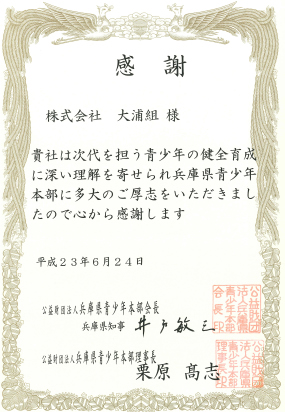 感謝
株式会社 大浦組 様
貴社は次代を担う青少年の健全育成
に深い理解を寄せられ兵庫県青少年
本部に多大のご厚志をいただきまし
たので心から感謝します
平成23年6月24日
公益財団法人兵庫県青少年本部会長
兵庫県知事 井戸敏三
公益財団法人兵庫県青少年本部理事長
栗原 髙志
公益財団
法人兵庫県
青少年本部
会長印
公益財団
法人兵庫県
青少年本部
理事長印